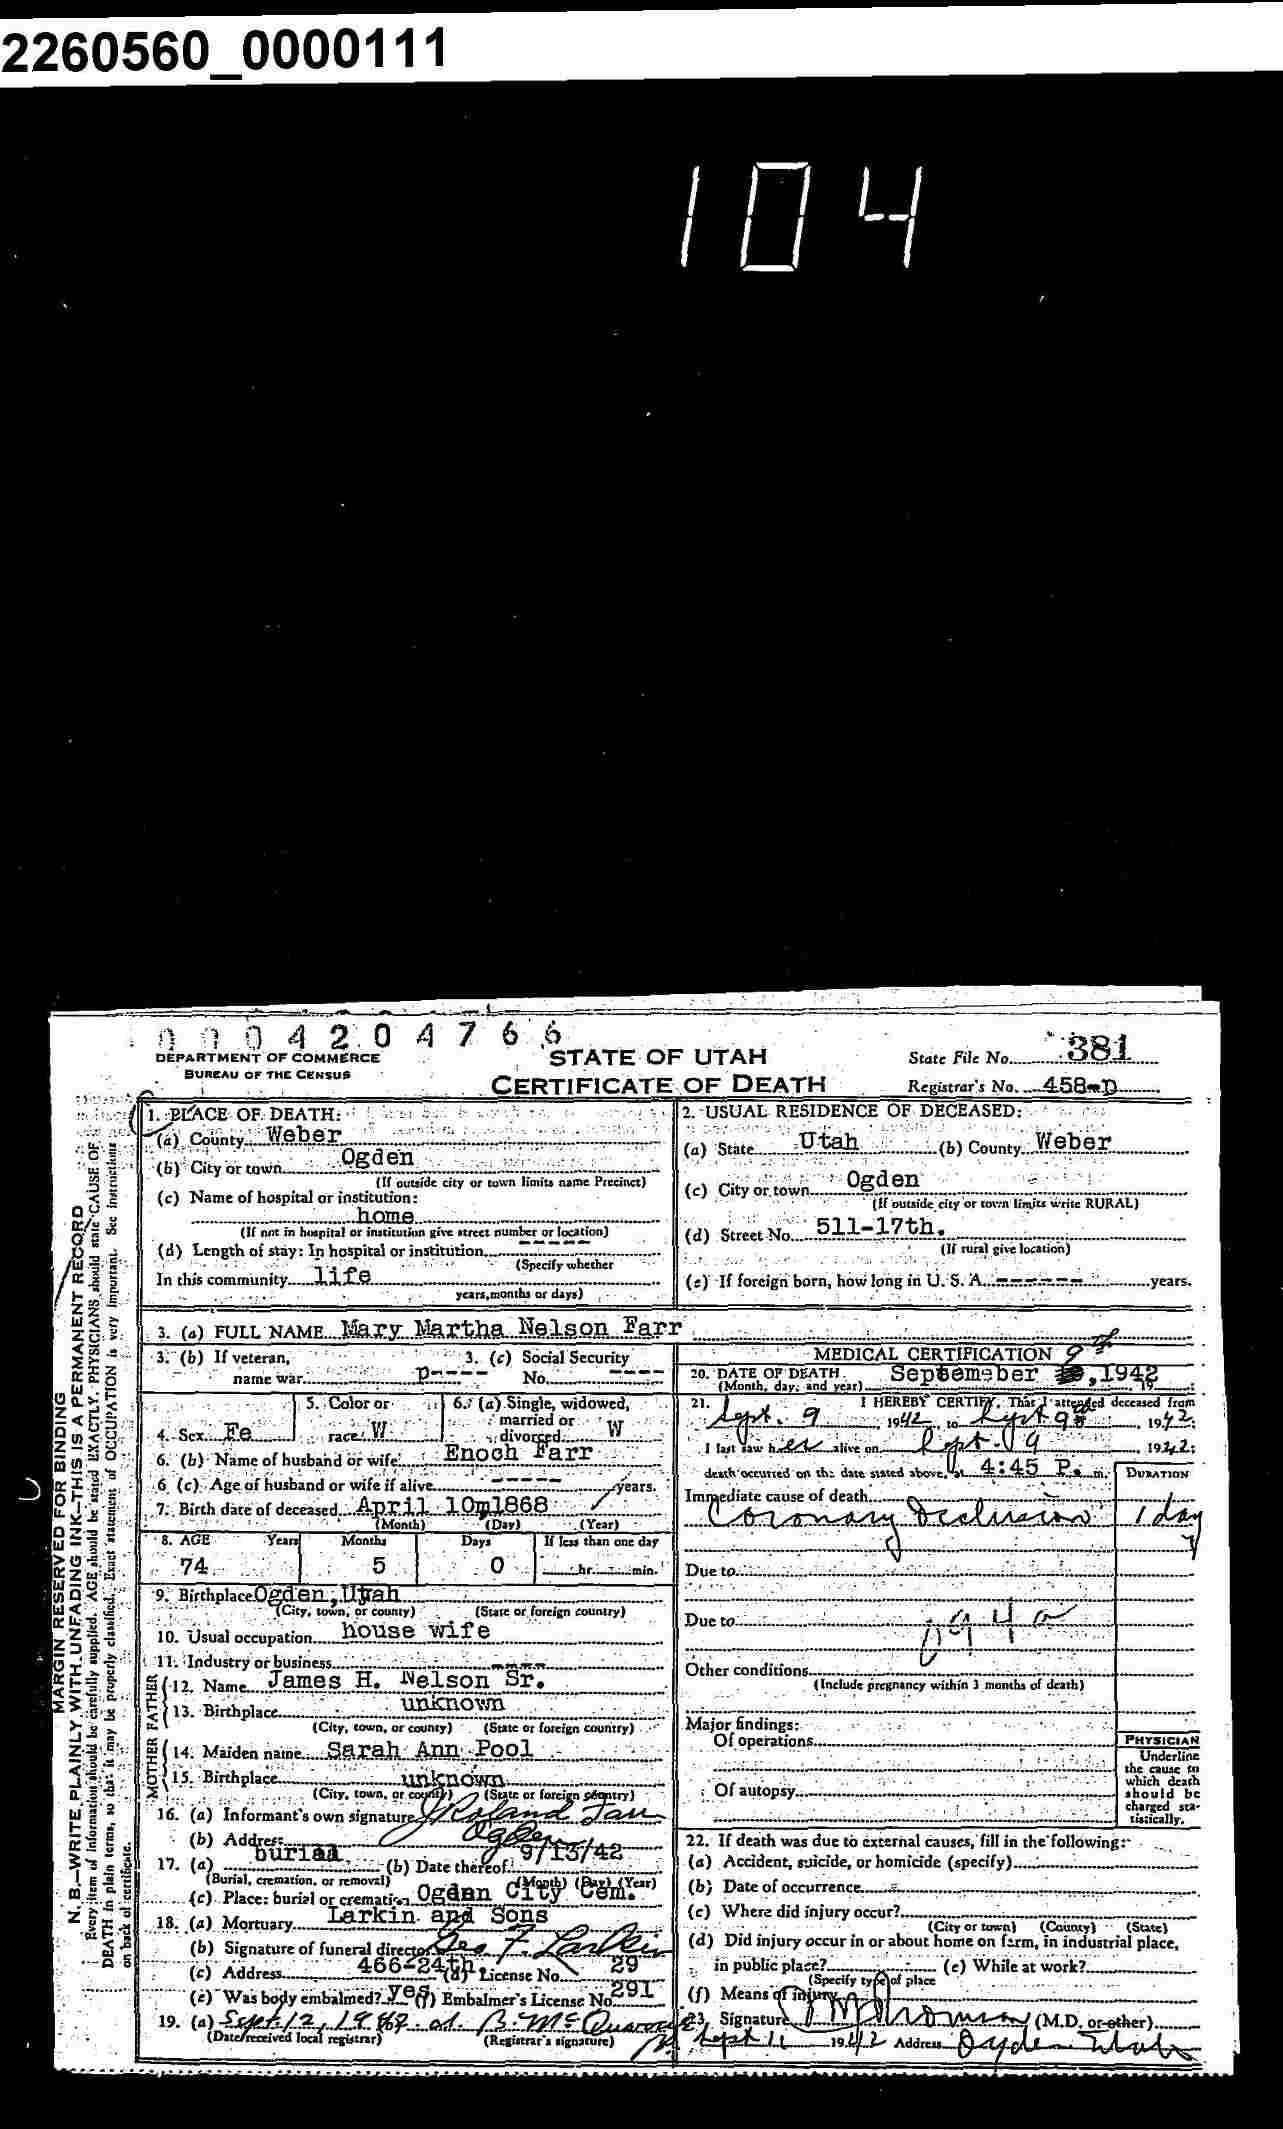 2260560_0000111
104
0004204766
DEPARTMENT OF COMMERCE
BUREAU OF THE CENSUS
STATE OF UTAH
CERTIFICATE OF DEATH
State File No. 381
Registrar's No. 458-D
MARGIN RESERVED FOR BINDING
N. B.—WRITE PLAINLY WITH UNFADING INK—THIS IS A PERMANENT RECORD
Every item of information should be carefully supplied. AGE should be stated EXACTLY. PHYSICIANS should state CAUSE OF
DEATH in plain terms, so that it may be properly classified. Exact statement of OCCUPATION is very important. See instructions
on back of certificate.
1. PLACE OF DEATH:
(a) County Weber
(b) City or town Ogden
(If outside city or town limits name Precinct)
(c) Name of hospital or institution:
home
(If not in hospital or institution give street number or location)
(d) Length of stay: In hospital or institution
(Specify whether
In this community life
years, months or days)
2. USUAL RESIDENCE OF DECEASED:
(a) State Utah (b) County Weber
(c) City or town Ogden
(If outside city or town limits write RURAL)
(d) Street No. 511-17th.
(If rural give location)
(e) If foreign born, how long in U. S. A. ------ years.
3. (a) FULL NAME Mary Martha Nelson Farr
3. (b) If veteran, 3. (c) Social Security
name war ---- No. ---
4. Sex Fe 5. Color or race W 6. (a) Single, widowed, married or divorced W
6. (b) Name of husband or wife Enoch Farr
6 (c) Age of husband or wife if alive ----- years.
7. Birth date of deceased April 10m1868
(Month) (Day) (Year)
8. AGE Years Months Days If less than one day
74 5 0 hr. min.
9. Birthplace Ogden, Utah
(City, town, or county) (State or foreign country)
10. Usual occupation house wife
11. Industry or business ----
FATHER
12. Name James H. Nelson Sr.
13. Birthplace unknown
(City, town, or county) (State or foreign country)
MOTHER
14. Maiden name Sarah Ann Pool
15. Birthplace unknown
(City, town, or county) (State or foreign country)
16. (a) Informant's own signature Roland Farr
(b) Address Ogden
17. (a) burial (b) Date thereof 9/13/42
(Burial, cremation, or removal) (Month) (Day) (Year)
(c) Place: burial or cremation Ogden City Cem.
18. (a) Mortuary Larkin and Sons
(b) Signature of funeral director Geo F. Larkin
(c) Address 466-24th. (d) License No. 29
(e) Was body embalmed? yes (f) Embalmer's License No. 291
19. (a) Sept. 12, 1942
(Date received local registrar) (Registrar's signature)
MEDICAL CERTIFICATION
20. DATE OF DEATH September 9th, 1942
(Month, day, and year) 19
21. I HEREBY CERTIFY, That I attended deceased from
Sept. 9 1942 to Sept 9 1942;
I last saw her alive on Sept. 9 1942;
death occurred on the date stated above, at 4:45 P. m.
DURATION
Immediate cause of death
Coronary Occlusion 1 day
Due to
Due to
94a
Other conditions
(Include pregnancy within 3 months of death)
Major findings:
Of operations
Of autopsy
PHYSICIAN
Underline
the cause to
which death
should be
charged sta-
tistically.
22. If death was due to external causes, fill in the following:
(a) Accident, suicide, or homicide (specify)
(b) Date of occurrence
(c) Where did injury occur?
(City or town) (County) (State)
(d) Did injury occur in or about home on farm, in industrial place,
in public place? (e) While at work?
(Specify type of place
(f) Means of injury
23. Signature (M.D. or other)
Sept 11 1942 Address Ogden Utah